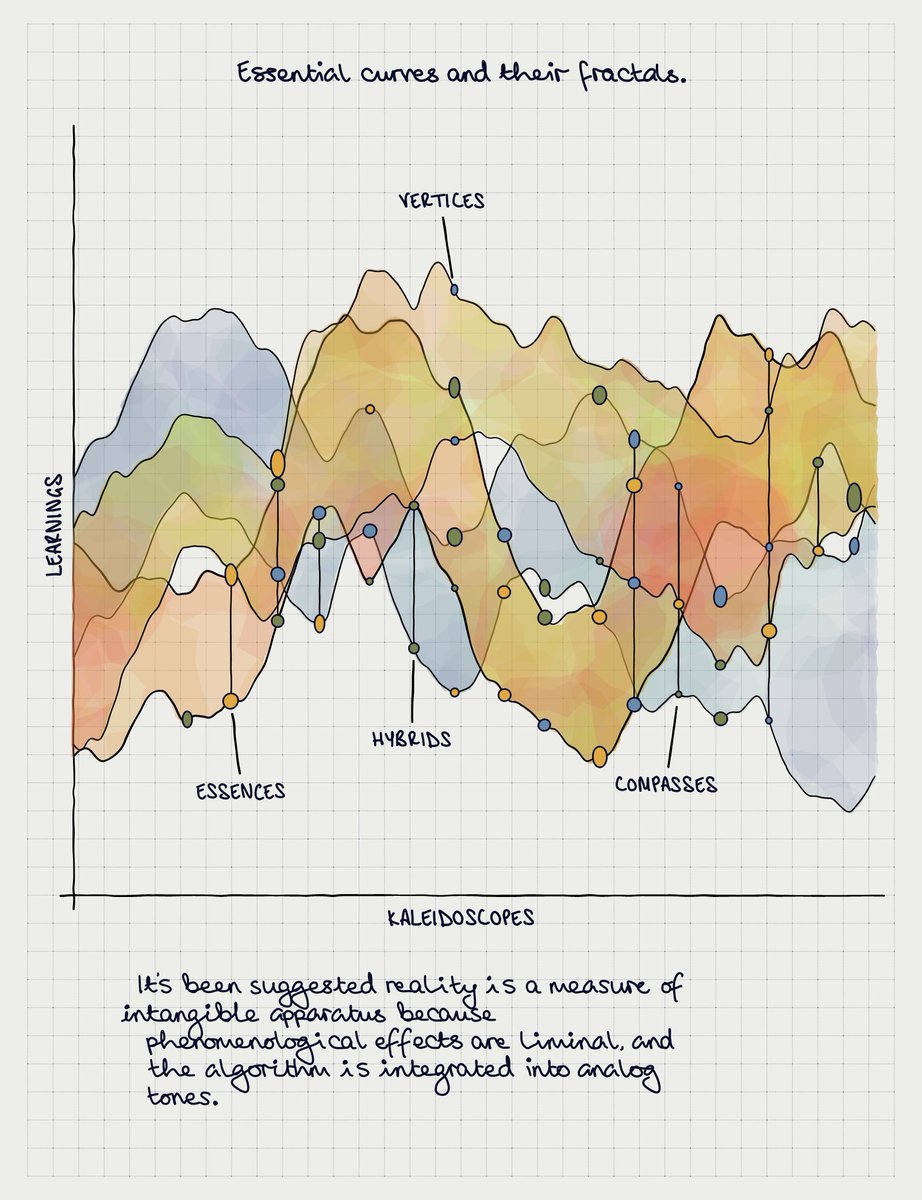 Essential curves and their fractals.
VERTICES
LEARNINGS
HYBRIDS
ESSENCES
COMPASSES
KALEIDOSCOPES
It's been suggested reality is a measure of
intangible apparatus because
phenomenological effects are liminal, and
the algorithm is integrated into analog
tones.